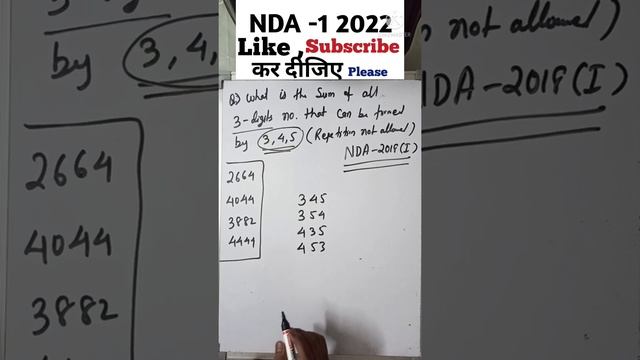 NDA -1 2022
Like , Subscribe
कर दीजिए Please
Q) What is the Sum of all
3-digits no. that can be formed
by 3,4,5 (Repetition not allowed)
NDA-2019(I)
2664
4044
3882
4444
345
354
435
453
by 3,4,
n not allowed)
NDA-2019(I)
2664
4044
3882